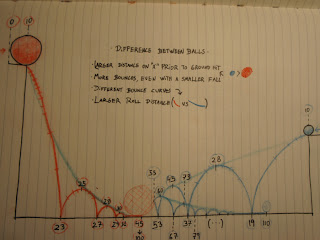 0 0
- DIFFERENCE BETWEEN BALLS -
· LARGER DISTANCE ON "X" PRIOR TO GROUND HIT
· MORE BOUNCES, EVEN WITH A SMALLER FALL
· DIFFERENT BOUNCE CURVES
· LARGER ROLL DISTANCE ( VS )
10
28
25
45
73
53
61
23
27
29
45
110
53
67
73
79
(...)
19
110